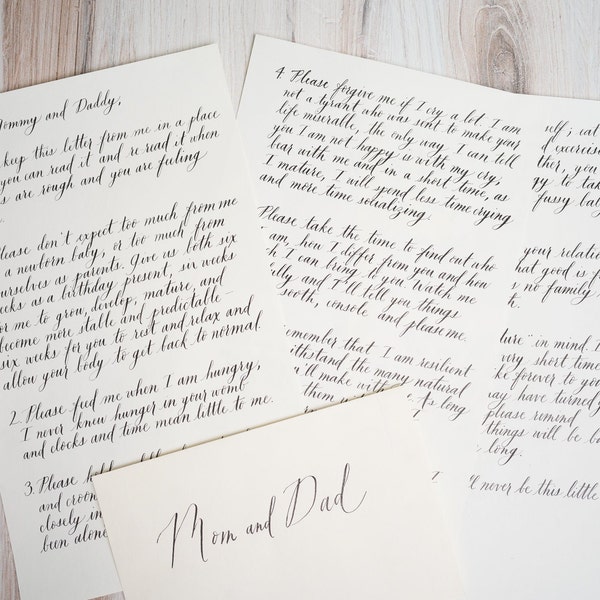 Mommy and Daddy,
keep this letter from me in a place
you can read it and re-read it when
s are rough and you are feeling
Please don't expect too much from me
a newborn baby, or too much from
ourselves as parents. Give us both six
weeks as a birthday present, six weeks
for me to grow, develop, mature, and
become more stable and predictable—
six weeks for you to rest and relax and
allow your body to get back to normal.
2. Please feed me when I am hungry,
I never knew hunger in your womb
and clocks and time mean little to me.
3. Please hold
and croon
closely in
been alone
4. Please forgive me if I cry a lot. I am
not a tyrant who was sent to make your
life miserable, the only way I can tell
you I am not happy is with my cry;
bear with me and in a short time, as
I mature, I will spend less time crying
and more time socializing.
Please take the time to find out who
am, how I differ from you and how
h I can bring to you. Watch me
fully and I'll tell you things
sooth, console and please me.
emember that I am resilient
ithstand the many natural
'll make with me. As long
them
self; eat
d exercise
ther, you
gy to take
fussy baby
your relations
hat good is f
s no family
lture" in mind. I
very short time
ke forever to you
may have turned
please remind
things will be ba
long.
ll never be this little
Mom and Dad